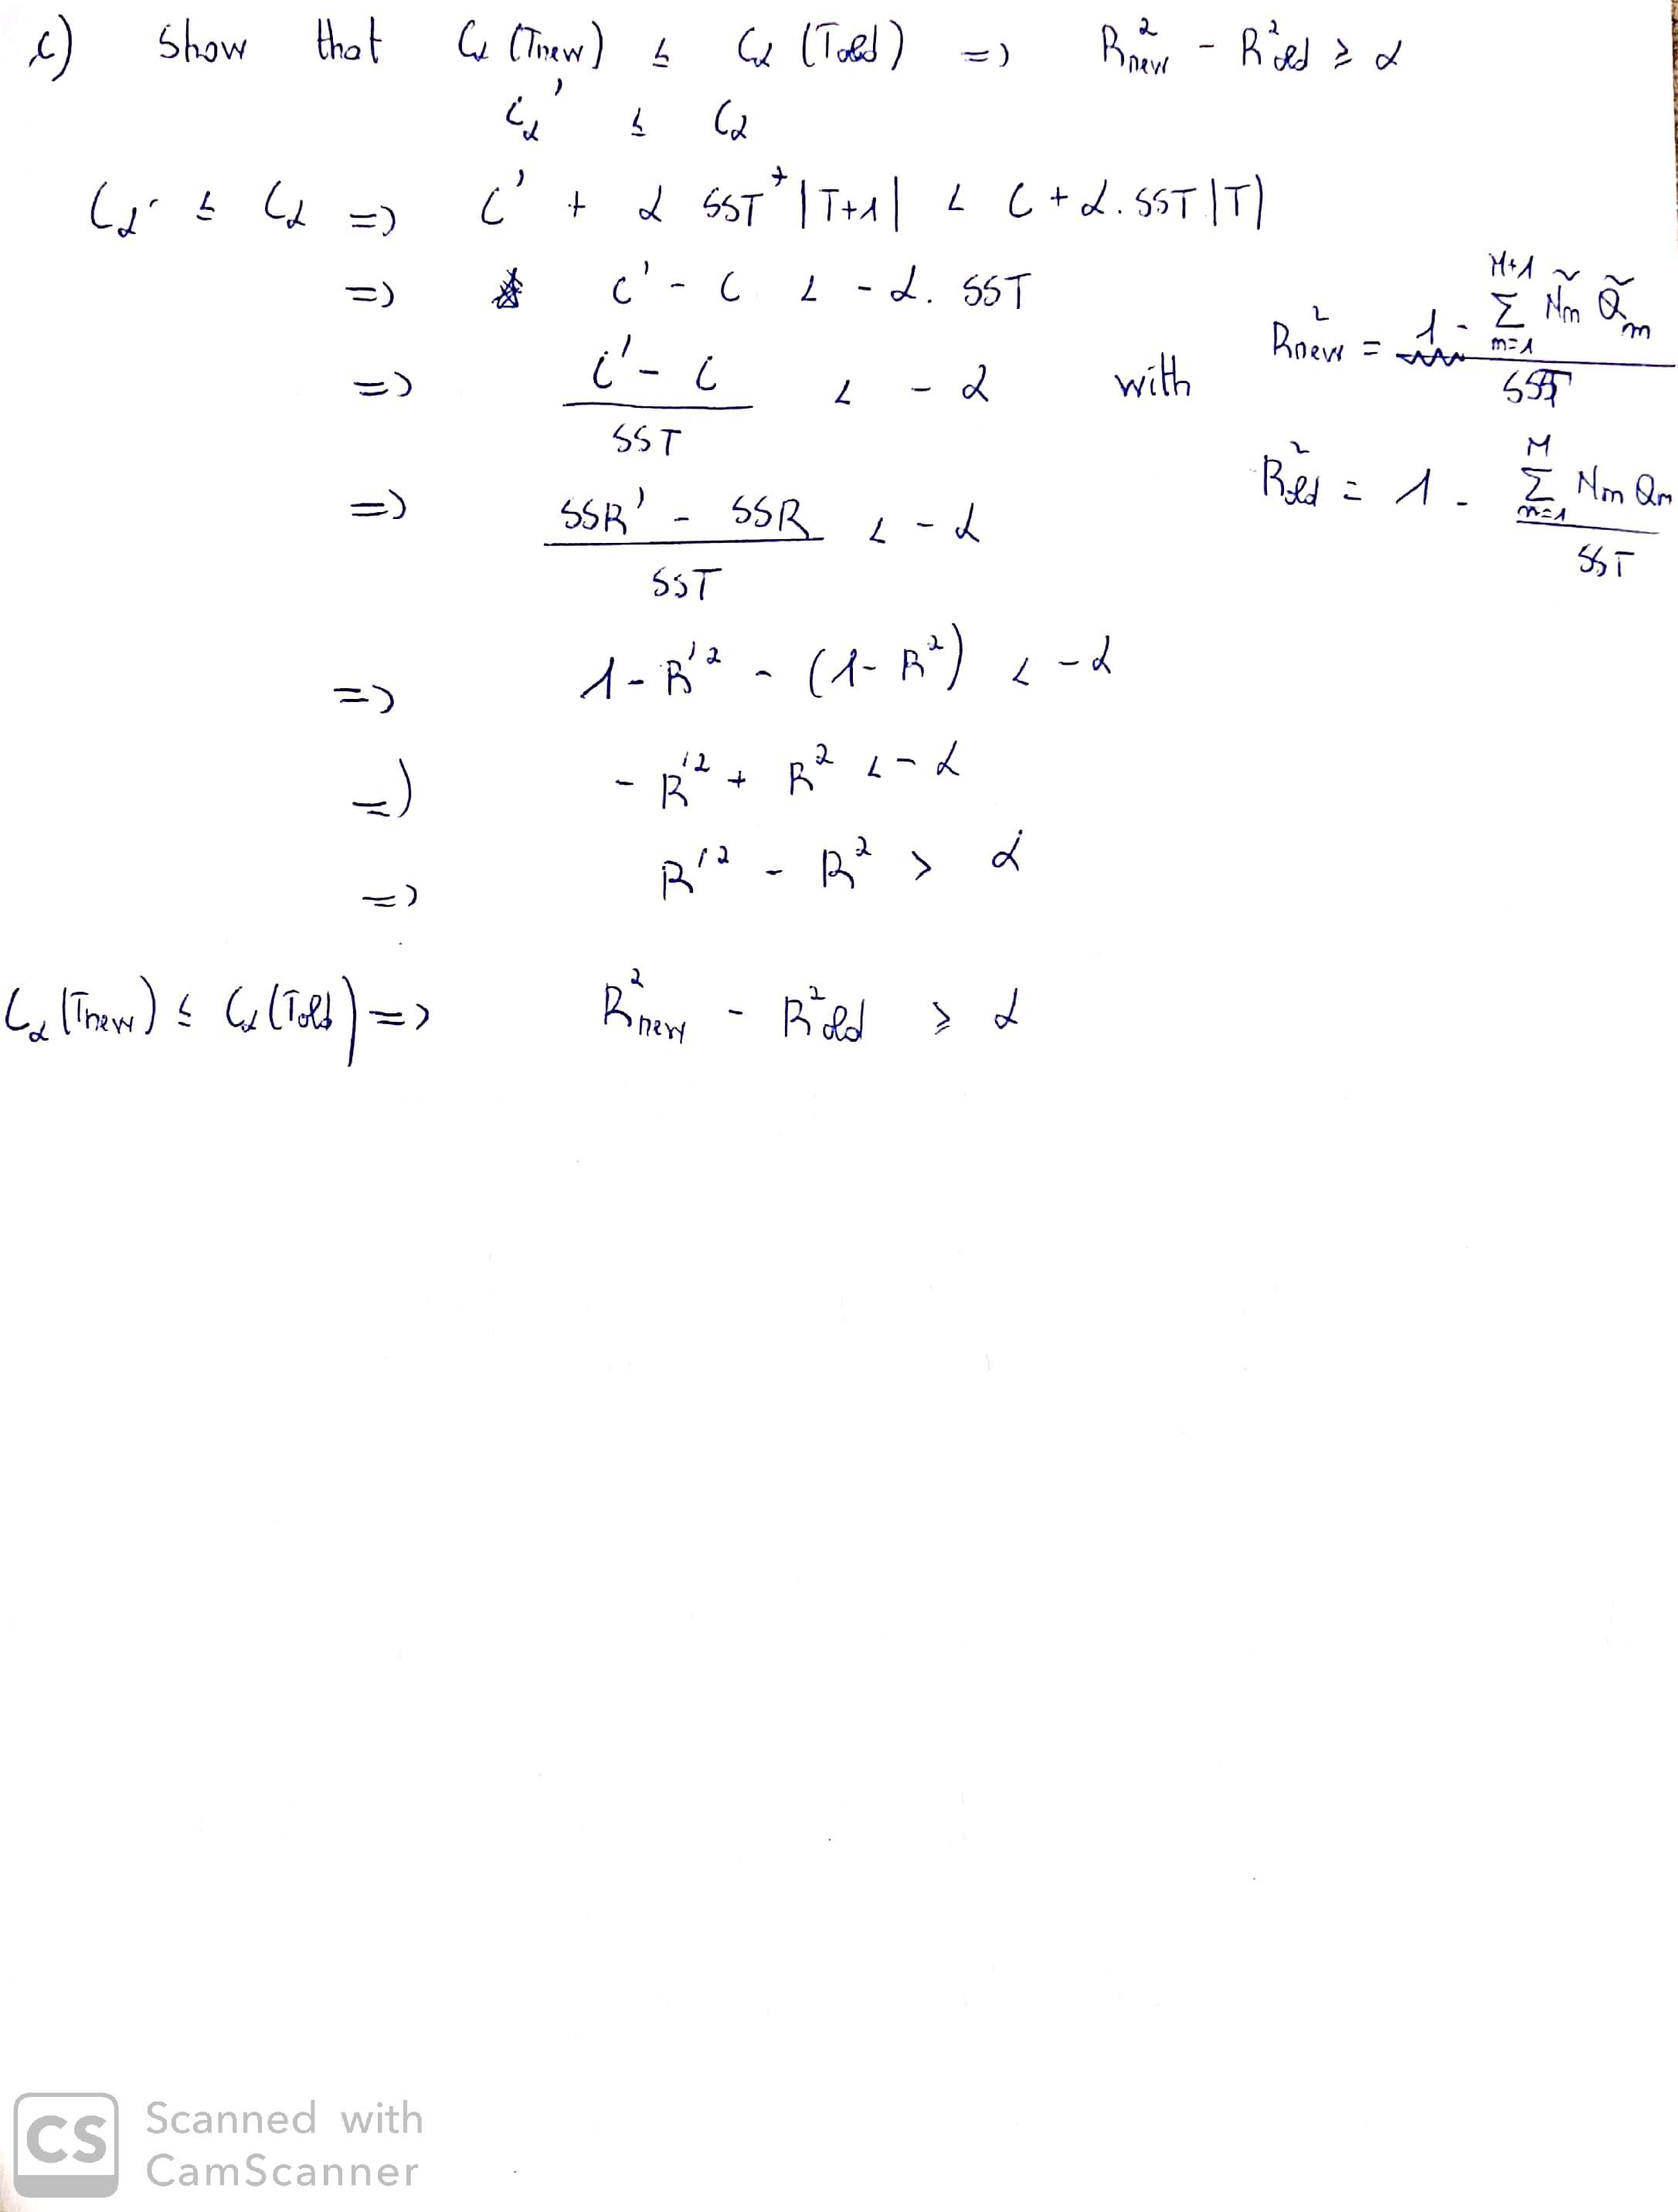 c) Show that Cα (Tnew) ≤ Cα (Told) => R²new - R²old ≥ α
Cα' ≤ Cα
Cα' ≤ Cα => C' + α SST * |T+1| < C + α. SST |T|
=> C' - C < - α. SST
=> (C' - C) / SST < - α with
R²new = 1 - Σ_{m=1}^{M+1} Ñm Q̃m / SST
R²old = 1 - Σ_{m=1}^{M} Nm Qm / SST
=> (SSR' - SSR) / SST < - α
=> 1 - R'² - (1 - R²) < - α
=> - R'² + R² < - α
=> R'² - R² > α
Cα (Tnew) ≤ Cα (Told) => R²new - R²old ≥ α
CS Scanned with
CamScanner